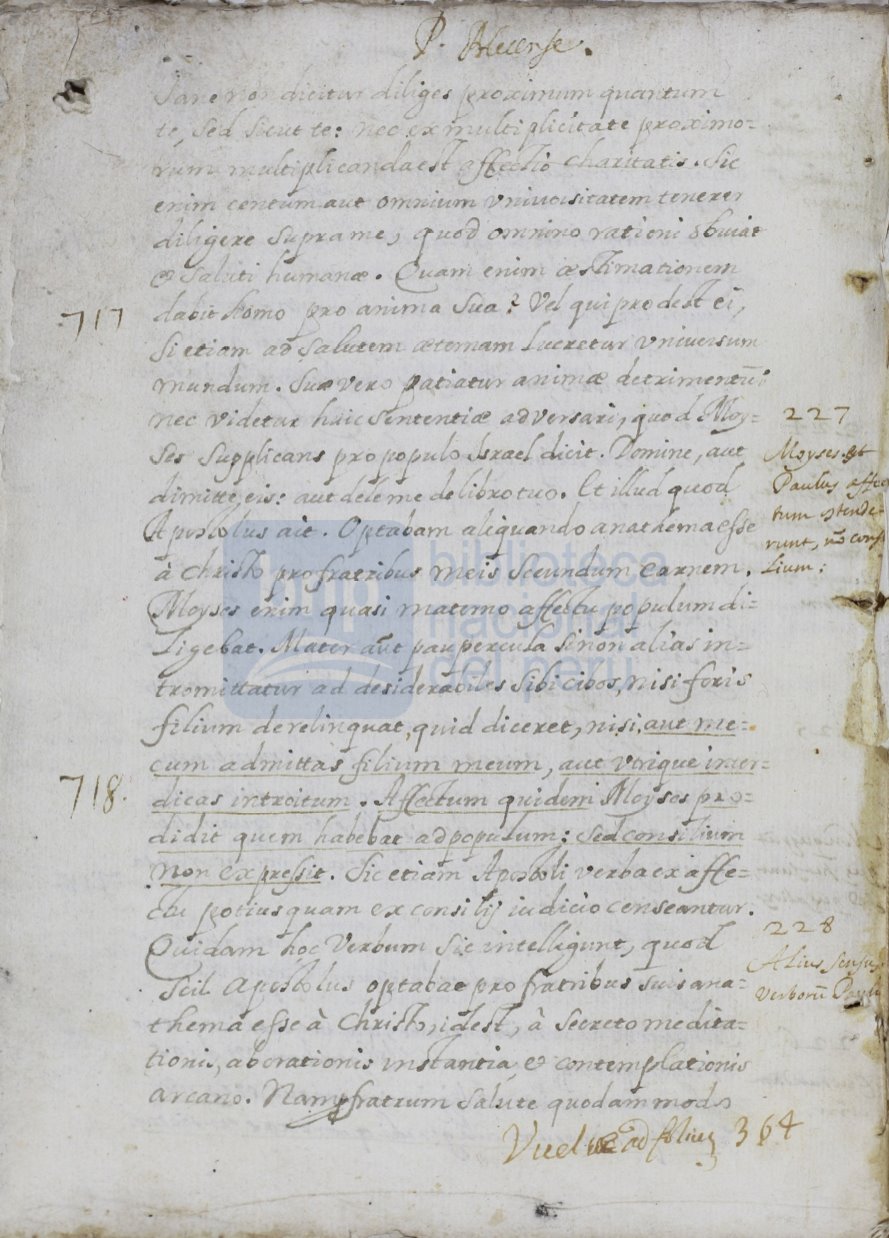 P. Blecense.
Sane non dicitur diliges proximum quantum
te, Sed Sicut te: nec ex multiplicitate proximo=
rum multiplicanda est affectio charitatis. Sic
enim centum aut omnium vniversitatem tenerer
diligere Supra me, quod omnino rationi obuiat
& Saluti humanæ. Quam enim æstimationem
717 dabit homo pro anima Sua? Vel qui prodest ei,
Si etiam ad Salutem æternam lucretur vniversum
mundum. Suæ vero patiatur animæ detrimentū:
nec videtur huic Sententiæ adversari, quod Moy=
Ses Supplicans pro populo Israel dicit. Domine, aut
dimitte eis: aut dele me de libro tuo. Et illud quod
Apostolus ait. Optabam aliquando anathema esse
à Christo pro fratribus meis Secundum carnem.
227
Moyses et
Paulus affec
tum ostende=
runt, nō consi
lium:
Moyses enim quasi materno affectu populum di=
ligebat. Mater aūt paupercula Si non alias in=
tromittatur ad desiderabiles Sibi cibos, nisi foris
filium derelinquat, quid diceret, nisi, aut me=
cum admittas filium meum, aut vtrique inter=
718. dicas introitum. Affectum quidem Moyses pro=
didit quem habebat ad populum: Sed consilium
non expressit. Sic etiam Apostoli verba ex affe=
ctu potius quam ex consilij iudicio censeantur.
Quidam hoc Verbum Sic intelligunt, quod
Scil. Apostolus optabat pro fratribus suis ana=
thema esse à Christo, id est, à Secreto medita=
tionis, ab orationis instantia, & contemplationis
arcano. Nam fratrum Salute quodammodo
228
Alius Sensus
verborū Pauli
Vuel ad foliū 364
biblioteca
nacional
del perú